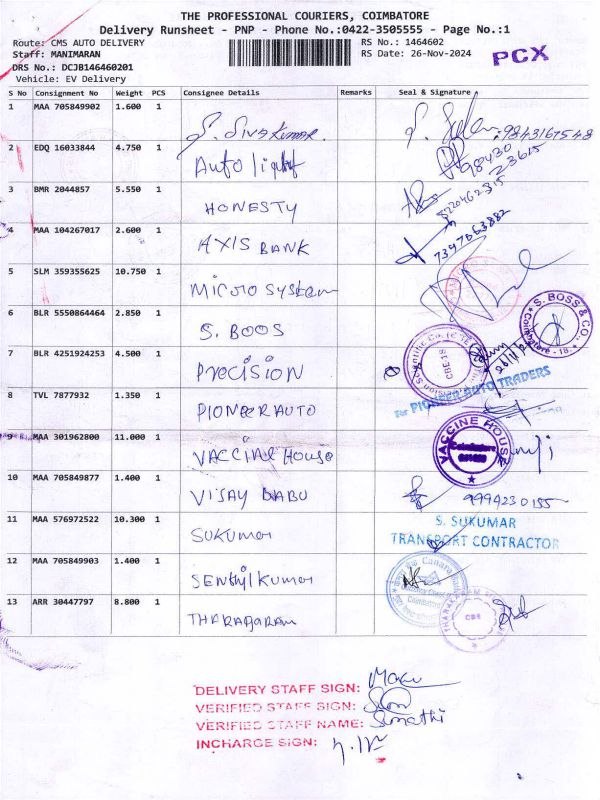 THE PROFESSIONAL COURIERS, COIMBATORE
Delivery Runsheet - PNP - Phone No.:0422-3505555 - Page No.:1
Route: CMS AUTO DELIVERY RS No.: 1464602
Staff: MANIMARAN RS Date: 26-Nov-2024 PCX
DRS No.: DCJB146460201
Vehicle: EV Delivery
S No Consignment No Weight PCS Consignee Details Remarks Seal & Signature
1 MAA 705849902 1.600 1 S. SIVAKUMAR 9843167548
2 EDQ 16033844 4.750 1 Auto light 98430 23615
3 BMR 2044857 5.550 1 HONESTY 8220462815
4 MAA 104267017 2.600 1 AXIS BANK 7397063882
5 SLM 359355625 10.750 1 Micro System
6 BLR 5550864464 2.850 1 S. BOOS S. BOSS & CO. Coimbatore - 18.
7 BLR 4251924253 4.500 1 Precision CBE-18
8 TVL 7877932 1.350 1 PIONEER AUTO For PIONEER AUTO TRADERS
9 MAA 301962800 11.000 1 VACCINE House VACCINE HOUSE
10 MAA 705849877 1.400 1 VIJAY BABU 9994230155
11 MAA 576972522 10.300 1 SUKUMAR S. SUKUMAR
TRANSPORT CONTRACTOR
12 MAA 705849903 1.400 1 SENTHIL KUMAR Canara
13 ARR 30447797 8.800 1 THARAGARAM CBE
DELIVERY STAFF SIGN:
VERIFIED STAFF SIGN:
VERIFIED STAFF NAME: Sumathi
INCHARGE SIGN: